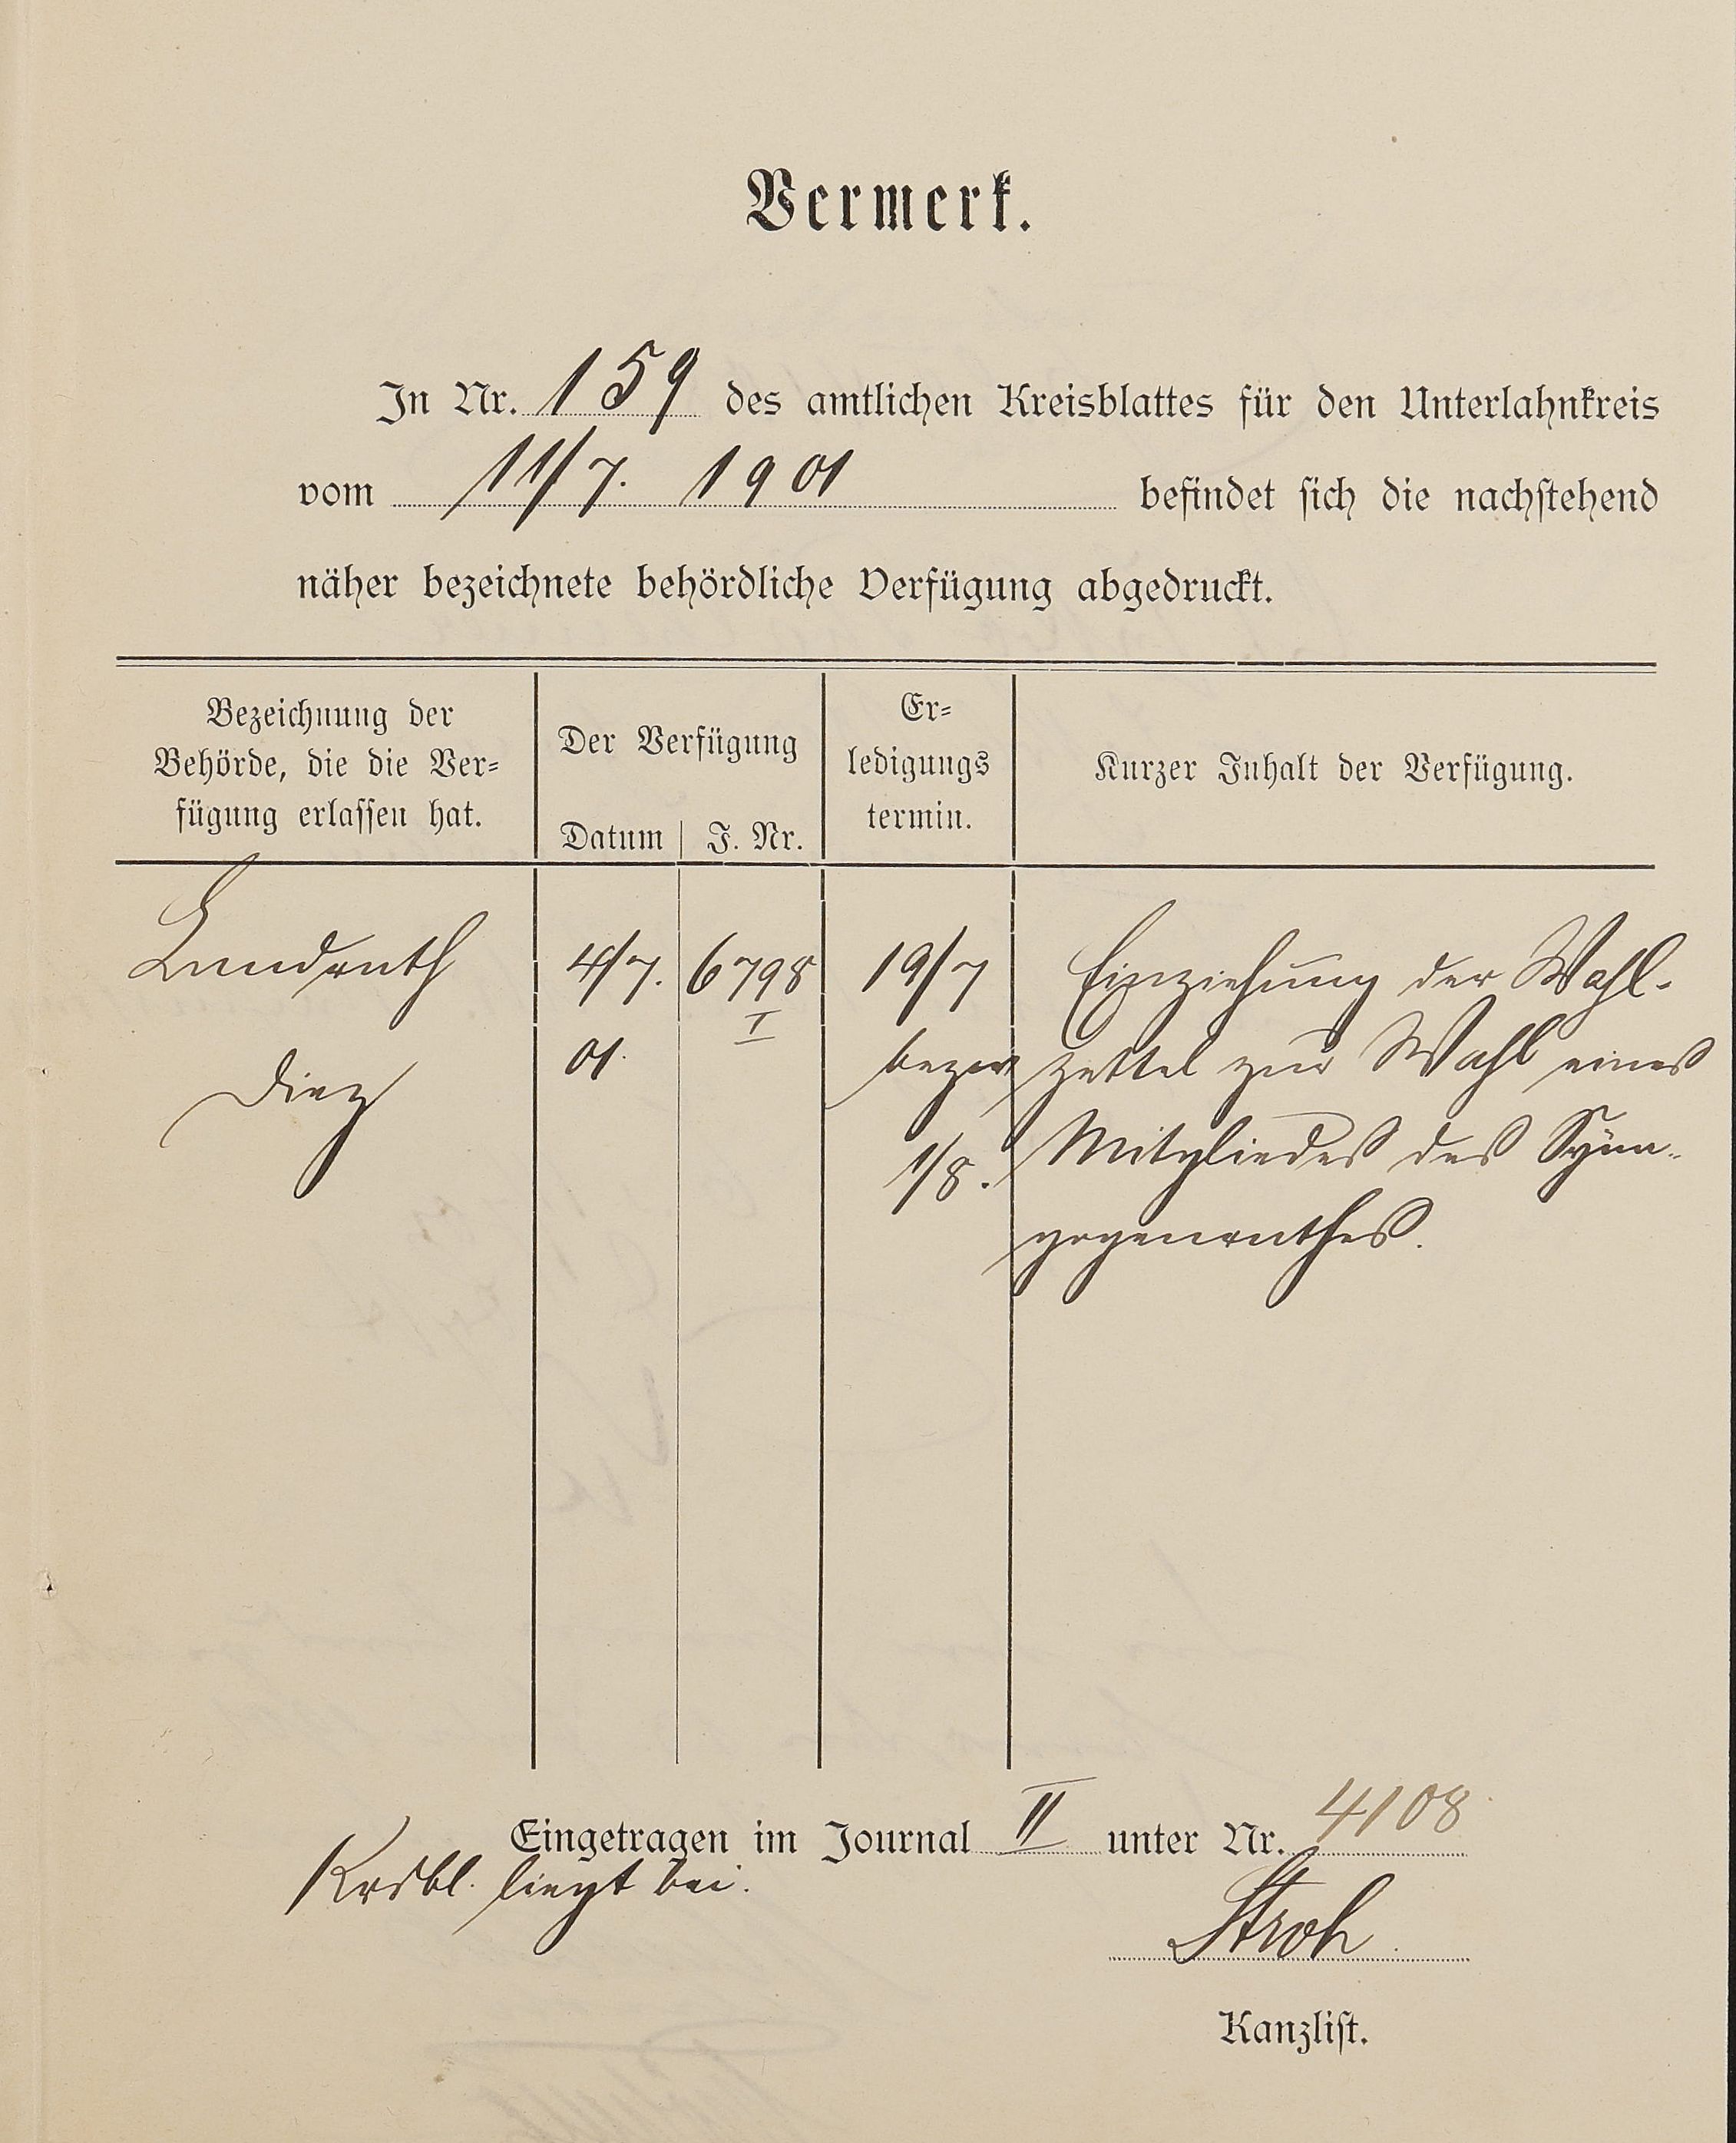 Vermerk.
In Nr. 159 des amtlichen Kreisblattes für den Unterlahnkreis
vom 11/7. 1901 befindet sich die nachstehend
näher bezeichnete behördliche Verfügung abgedruckt.
Bezeichnung der
Behörde, die die Ver-
fügung erlassen hat.
Der Verfügung
Datum | J. Nr.
Er-
ledigungs
termin.
Kurzer Inhalt der Verfügung.
Landrath
Diez
4/7.
01.
6798
I
19/7
bezw
1/8.
Einziehung der Wahl-
zettel zur Wahl eines
Mitgliedes des Syna-
gogenrathes.
Eingetragen im Journal II unter Nr. 4108
Krsbl. liegt bei.
Stroh
Kanzlist.